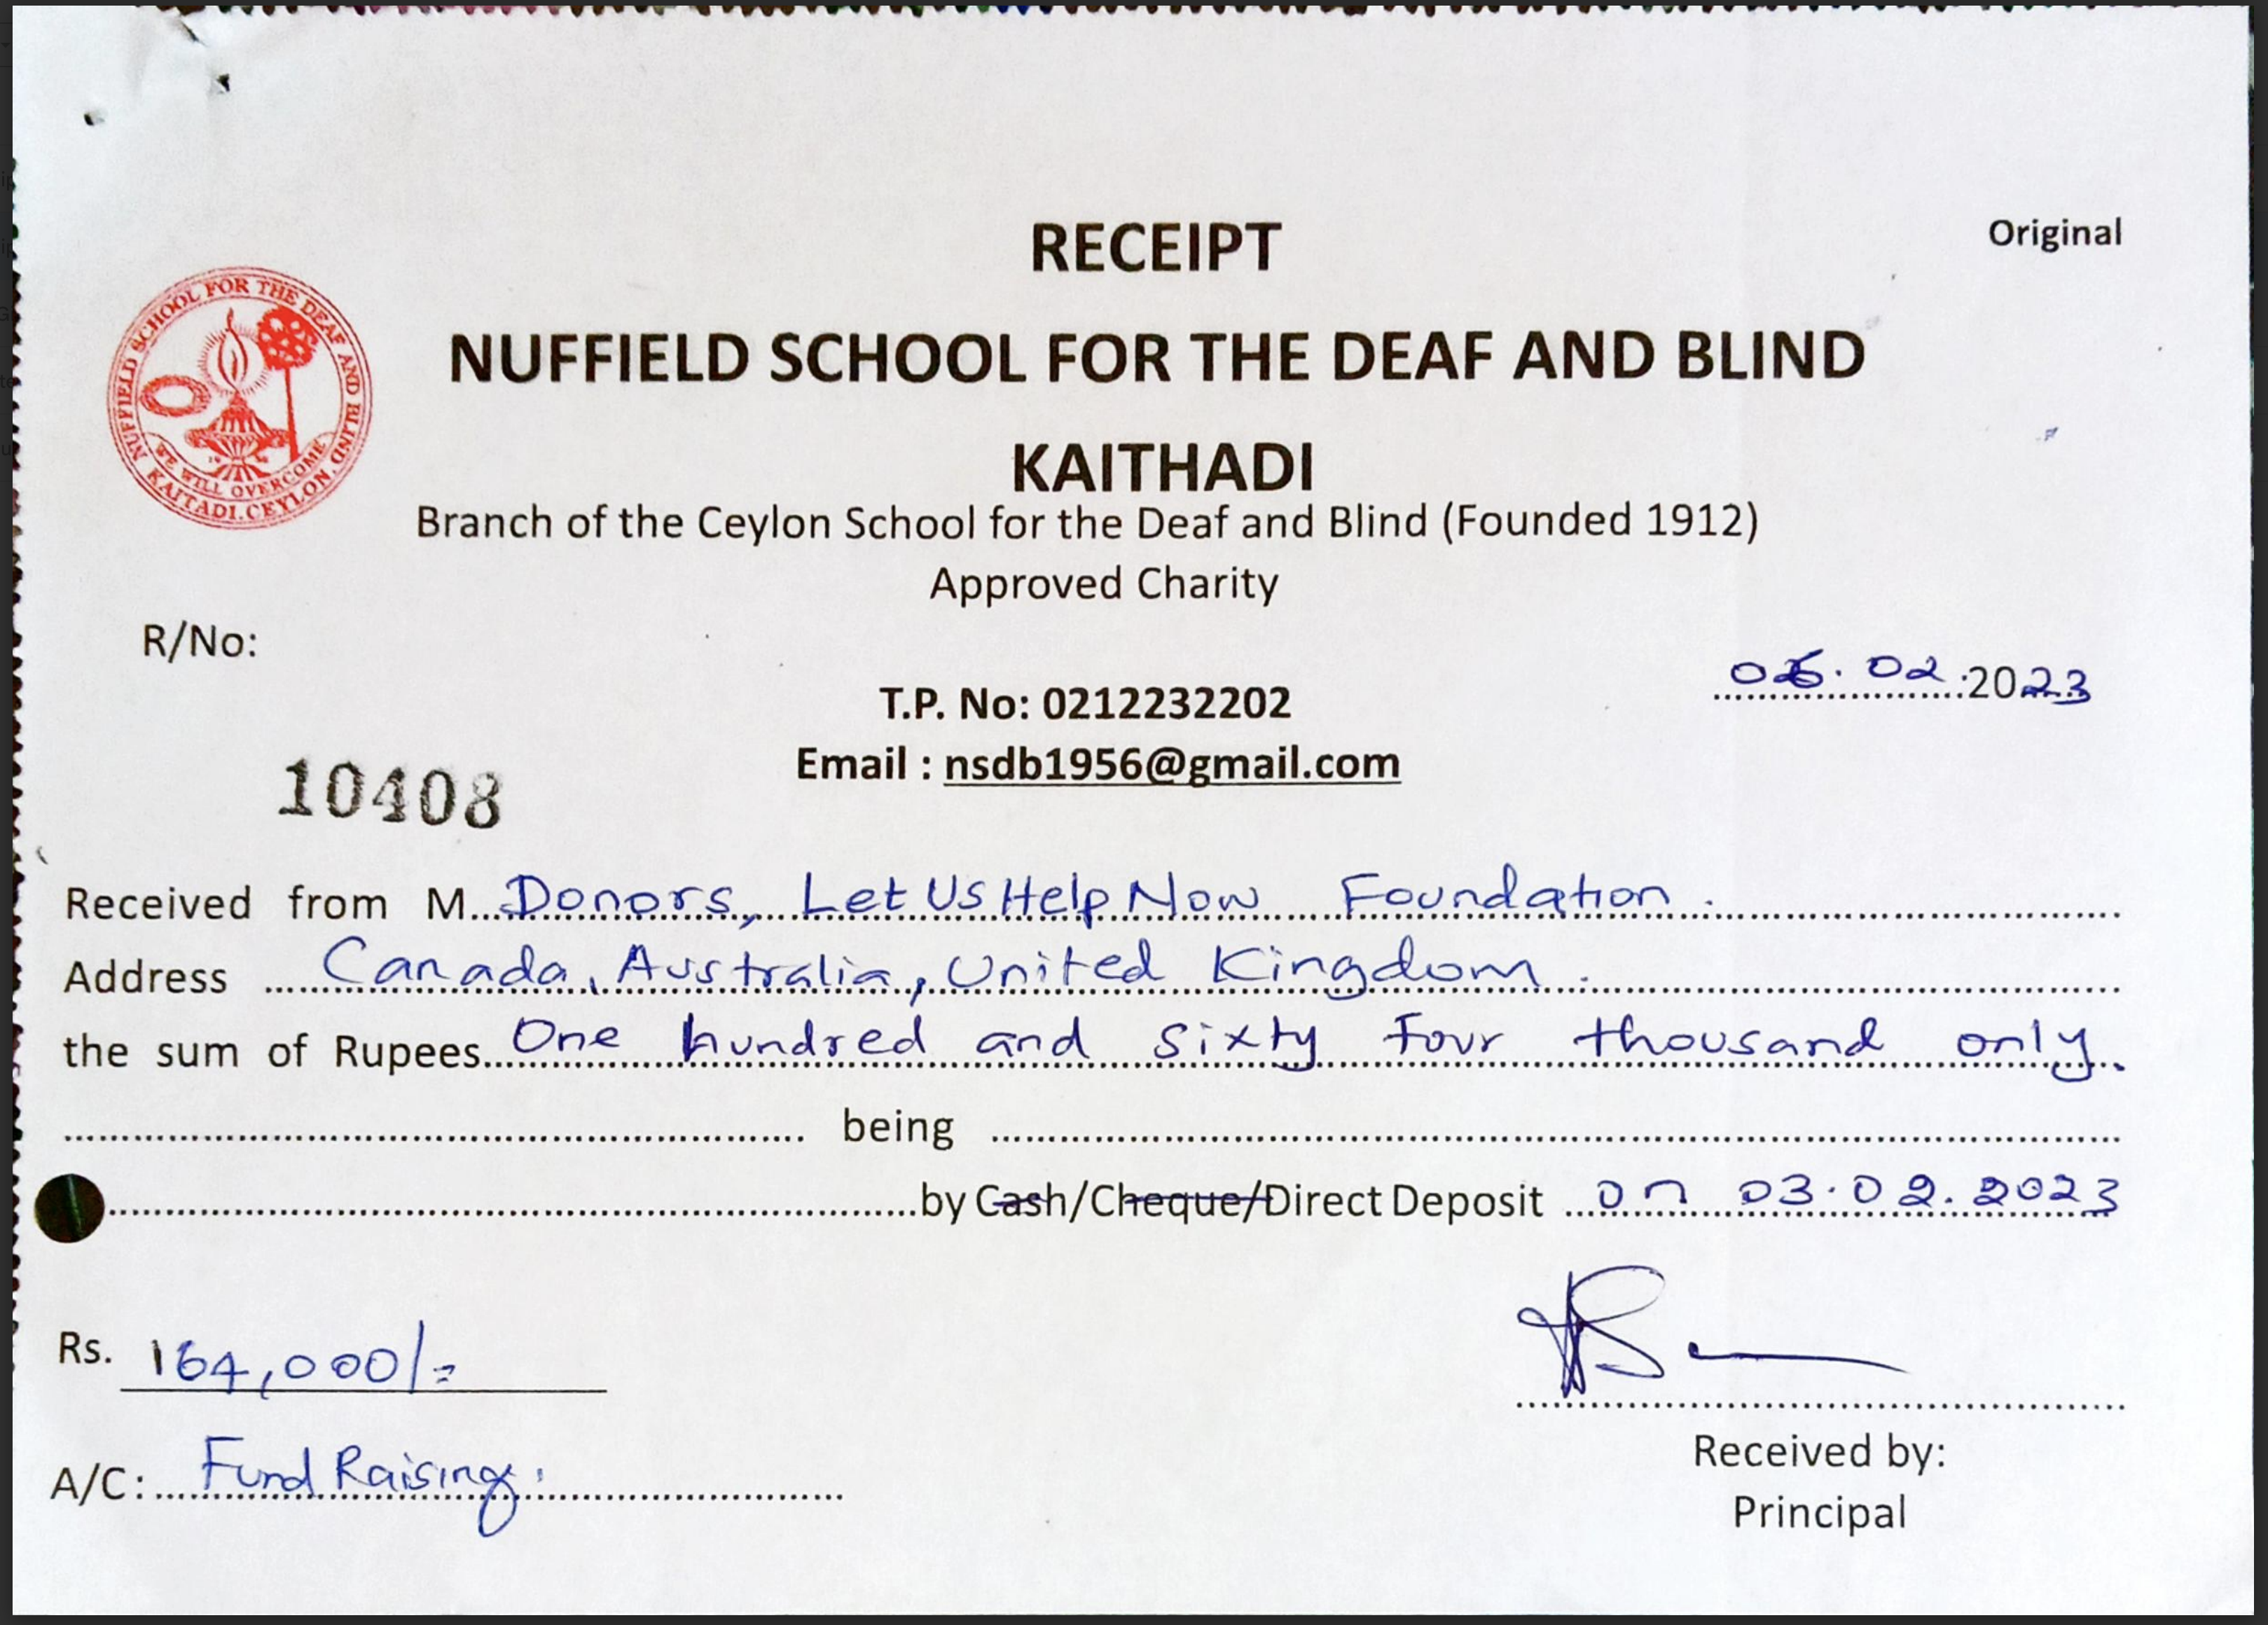 RECEIPT
Original
NUFFIELD SCHOOL FOR THE DEAF AND BLIND
KAITHADI
NUFFIELD SCHOOL FOR THE DEAF AND BLIND,
WE WILL OVERCOME
KAITADI.CEYLON.
Branch of the Ceylon School for the Deaf and Blind (Founded 1912)
Approved Charity
R/No:
.02.2023
T.P. No: 0212232202
Email : nsdb1956@gmail.com
10408
Received from M...Donors, Let Us Help Now Foundation.
Address ...Canada, Australia, United Kingdom.
the sum of Rupees...One hundred and sixty Four thousand only.
being
by Cash/Cheque/Direct Deposit ...on 03.02.2023
Rs. 164,000/=
A/C:...Fund Raising.
Received by:
Principal